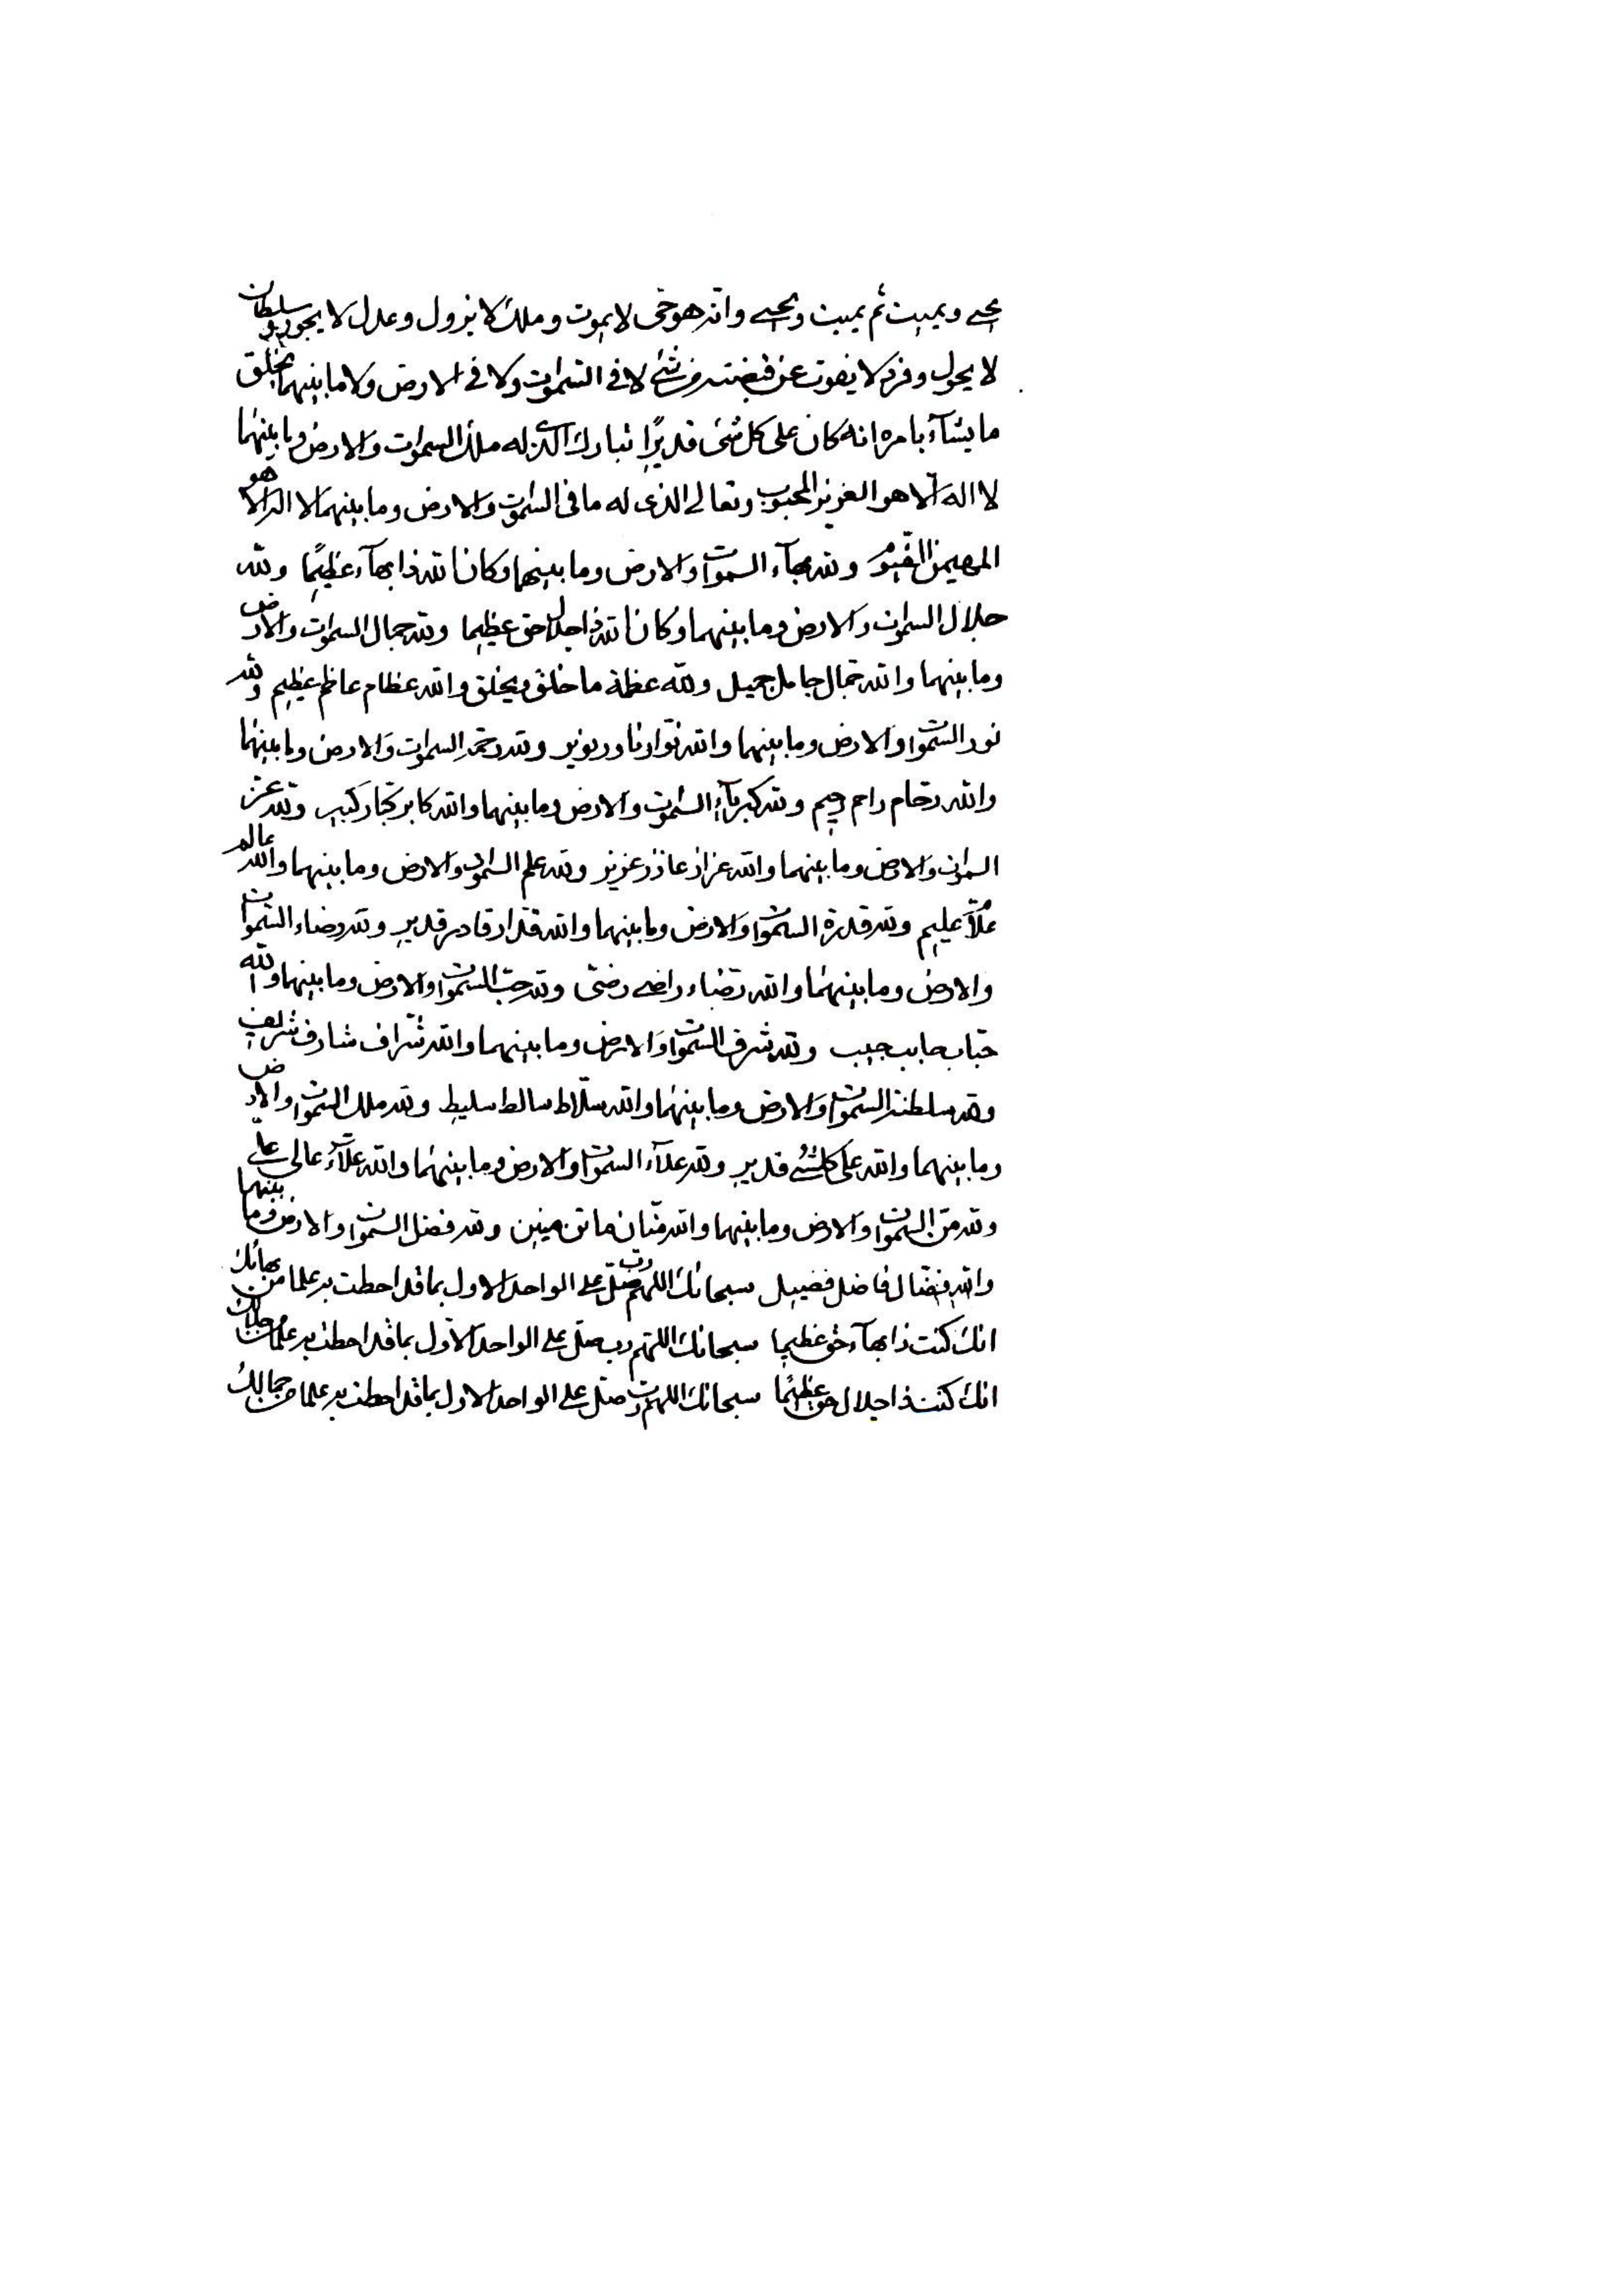 يحيي ويميت ثم يميت ويحيي وانه هو حي لا يموت وملك لا يزول وعدل لا يجور وسلطان
لا يحول وفرد لا يفوت عن قبضته من شئ لا في السموات ولا في الارض ولا ما بينهما يخلق
ما يشآء بامره انه كان على كل شئ قديرًا تبارك الذي له ملك السموات والارض وما بينهما
لا اله الا هو العزيز المحبوب وتعالى الذي له ما في السموات والارض وما بينهما لا اله الا هو
المهيمن القيوم ولله بهآء السموات والارض وما بينهما وكان الله ذا بهآء عظيمًا ولله
جلال السموات والارض وما بينهما وكان الله ذا جلال حق عظيما ولله جمال السموات والارض
وما بينهما والله جمال جامل جميل ولله عظمة ما خلق ويخلق والله عظام عاظم عظيم ولله
نور السموات والارض وما بينهما والله نوار ناور نوير ولله رحمة السموات والارض وما بينهما
والله رحام راحم رحيم ولله كبريآء السموات والارض وما بينهما والله كابر كبار كبير ولله عز
السموات والارض وما بينهما والله عزاز عازز عزيز ولله علم السموات والارض وما بينهما والله عالم
علآم عليم ولله قدرة السموات والارض وما بينهما والله قدار قادر قدير ولله رضاء السموات
والارض وما بينهما والله رضاء راضي رضي ولله حب السموات والارض وما بينهما والله
حباب حابب حبيب ولله شرف السموات والارض وما بينهما والله شراف شارف شريف
ولله سلطنة السموات والارض وما بينهما والله سلاط سالط سليط ولله ملك السموات والارض
وما بينهما والله على كل شئ قدير ولله علآء السموات والارض وما بينهما والله علآء عالي علي
ولله من السموات والارض وما بينهما والله منان مانن منين ولله فضل السموات والارض وما بينهما
والله فضال فاضل فضيل سبحانك اللهم رب صل على الواحد الاول بما قد احطت به علما من بهائك
انك كنت ذا بهآء حق عظيما سبحانك اللهم رب صل على الواحد الاول بما قد احطت به علما من جلالك
انك كنت ذا جلال حق عظيمًا سبحانك اللهم رب صل على الواحد الاول بما قد احطت به علما من جمالك